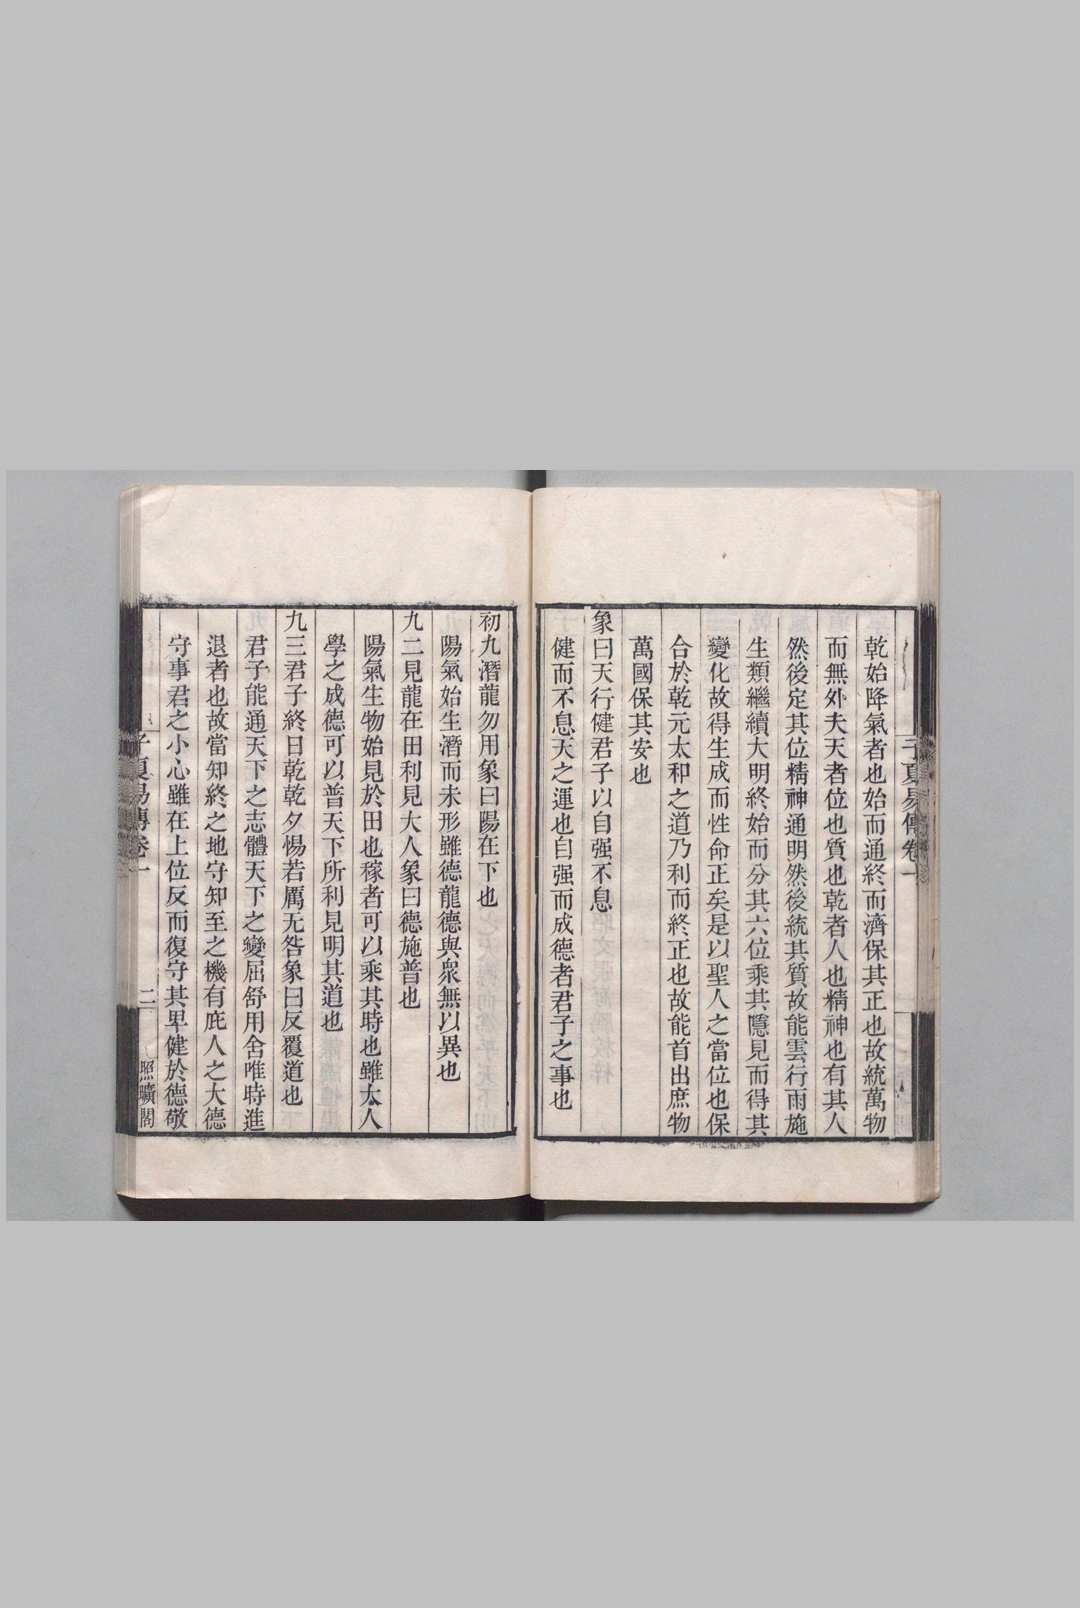 乾始降氣者也始而通終而濟保其正也故統萬物
而無外夫天者位也質也乾者人也精神也有其人
然後定其位精神通明然後統其質故能雲行雨施
生類繼續大明終始而分其六位乘其隱見而得其
變化故得生成而性命正矣是以聖人之當位也保
合於乾元太和之道乃利而終正也故能首出庶物
萬國保其安也
象曰天行健君子以自强不息
健而不息天之運也自强而成德者君子之事也
子夏易傳卷一
初九潛龍勿用象曰陽在下也
陽氣始生潛而未形雖德龍德與衆無以異也
九二見龍在田利見大人象曰德施普也
陽氣生物始見於田也稼者可以乘其時也雖大人
學之成德可以普天下所利見明其道也
九三君子終日乾乾夕惕若厲无咎象曰反覆道也
君子能通天下之志體天下之變屈舒用舍唯時進
退者也故當知終之地守知至之機有庇人之大德
守事君之小心雖在上位反而復守其卑健於德敬
子夏易傳卷一
二
照曠閣